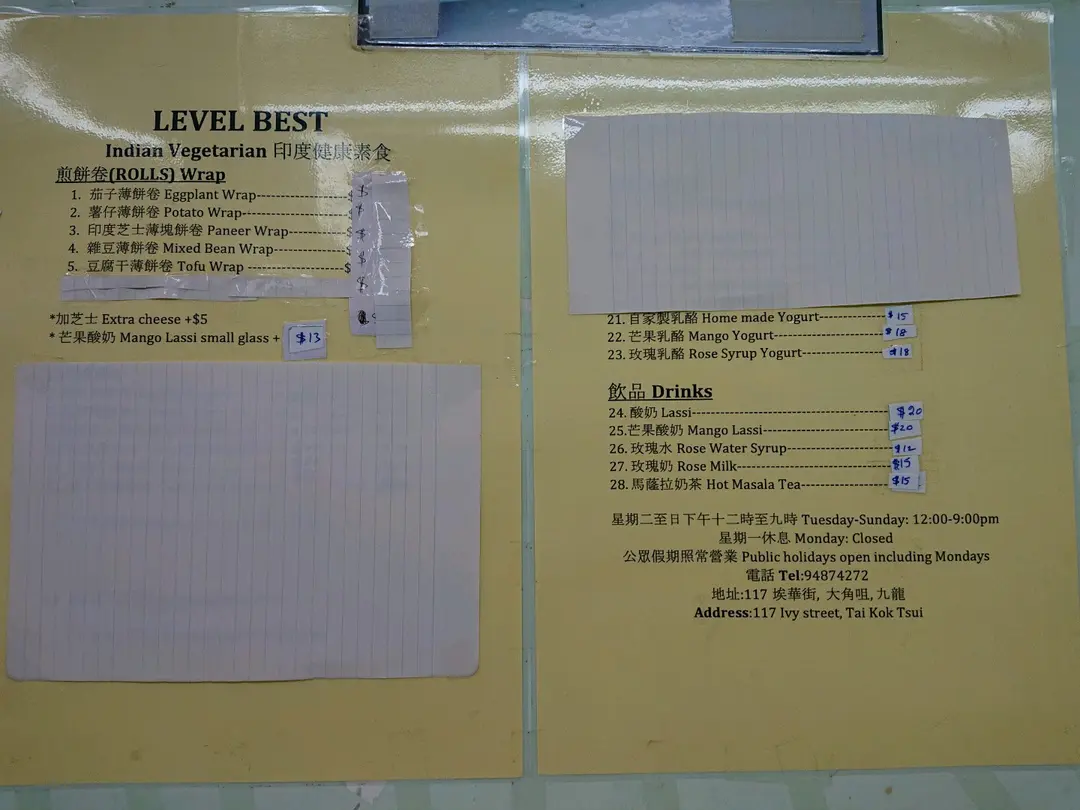 LEVEL BEST
Indian Vegetarian 印度健康素食
煎餅卷(ROLLS) Wrap
1. 茄子薄餅卷 Eggplant Wrap--------------------$
2. 薯仔薄餅卷 Potato Wrap-----------------------$
3. 印度芝士薄塊餅卷 Paneer Wrap------------$
4. 雜豆薄餅卷 Mixed Bean Wrap----------------$
5. 豆腐干薄餅卷 Tofu Wrap ---------------------$
*加芝士 Extra cheese +$5
* 芒果酸奶 Mango Lassi small glass + $13
21. 自家製乳酪 Home made Yogurt--------------$15
22. 芒果乳酪 Mango Yogurt------------------------$18
23. 玫瑰乳酪 Rose Syrup Yogurt------------------$18
飲品 Drinks
24. 酸奶 Lassi------------------------------------------$20
25.芒果酸奶 Mango Lassi---------------------------$20
26. 玫瑰水 Rose Water Syrup----------------------$12
27. 玫瑰奶 Rose Milk---------------------------------$15
28. 馬薩拉奶茶 Hot Masala Tea-------------------$15
星期二至日下午十二時至九時 Tuesday-Sunday: 12:00-9:00pm
星期一休息 Monday: Closed
公眾假期照常營業 Public holidays open including Mondays
電話 Tel:94874272
地址:117 埃華街, 大角咀, 九龍
Address:117 Ivy street, Tai Kok Tsui